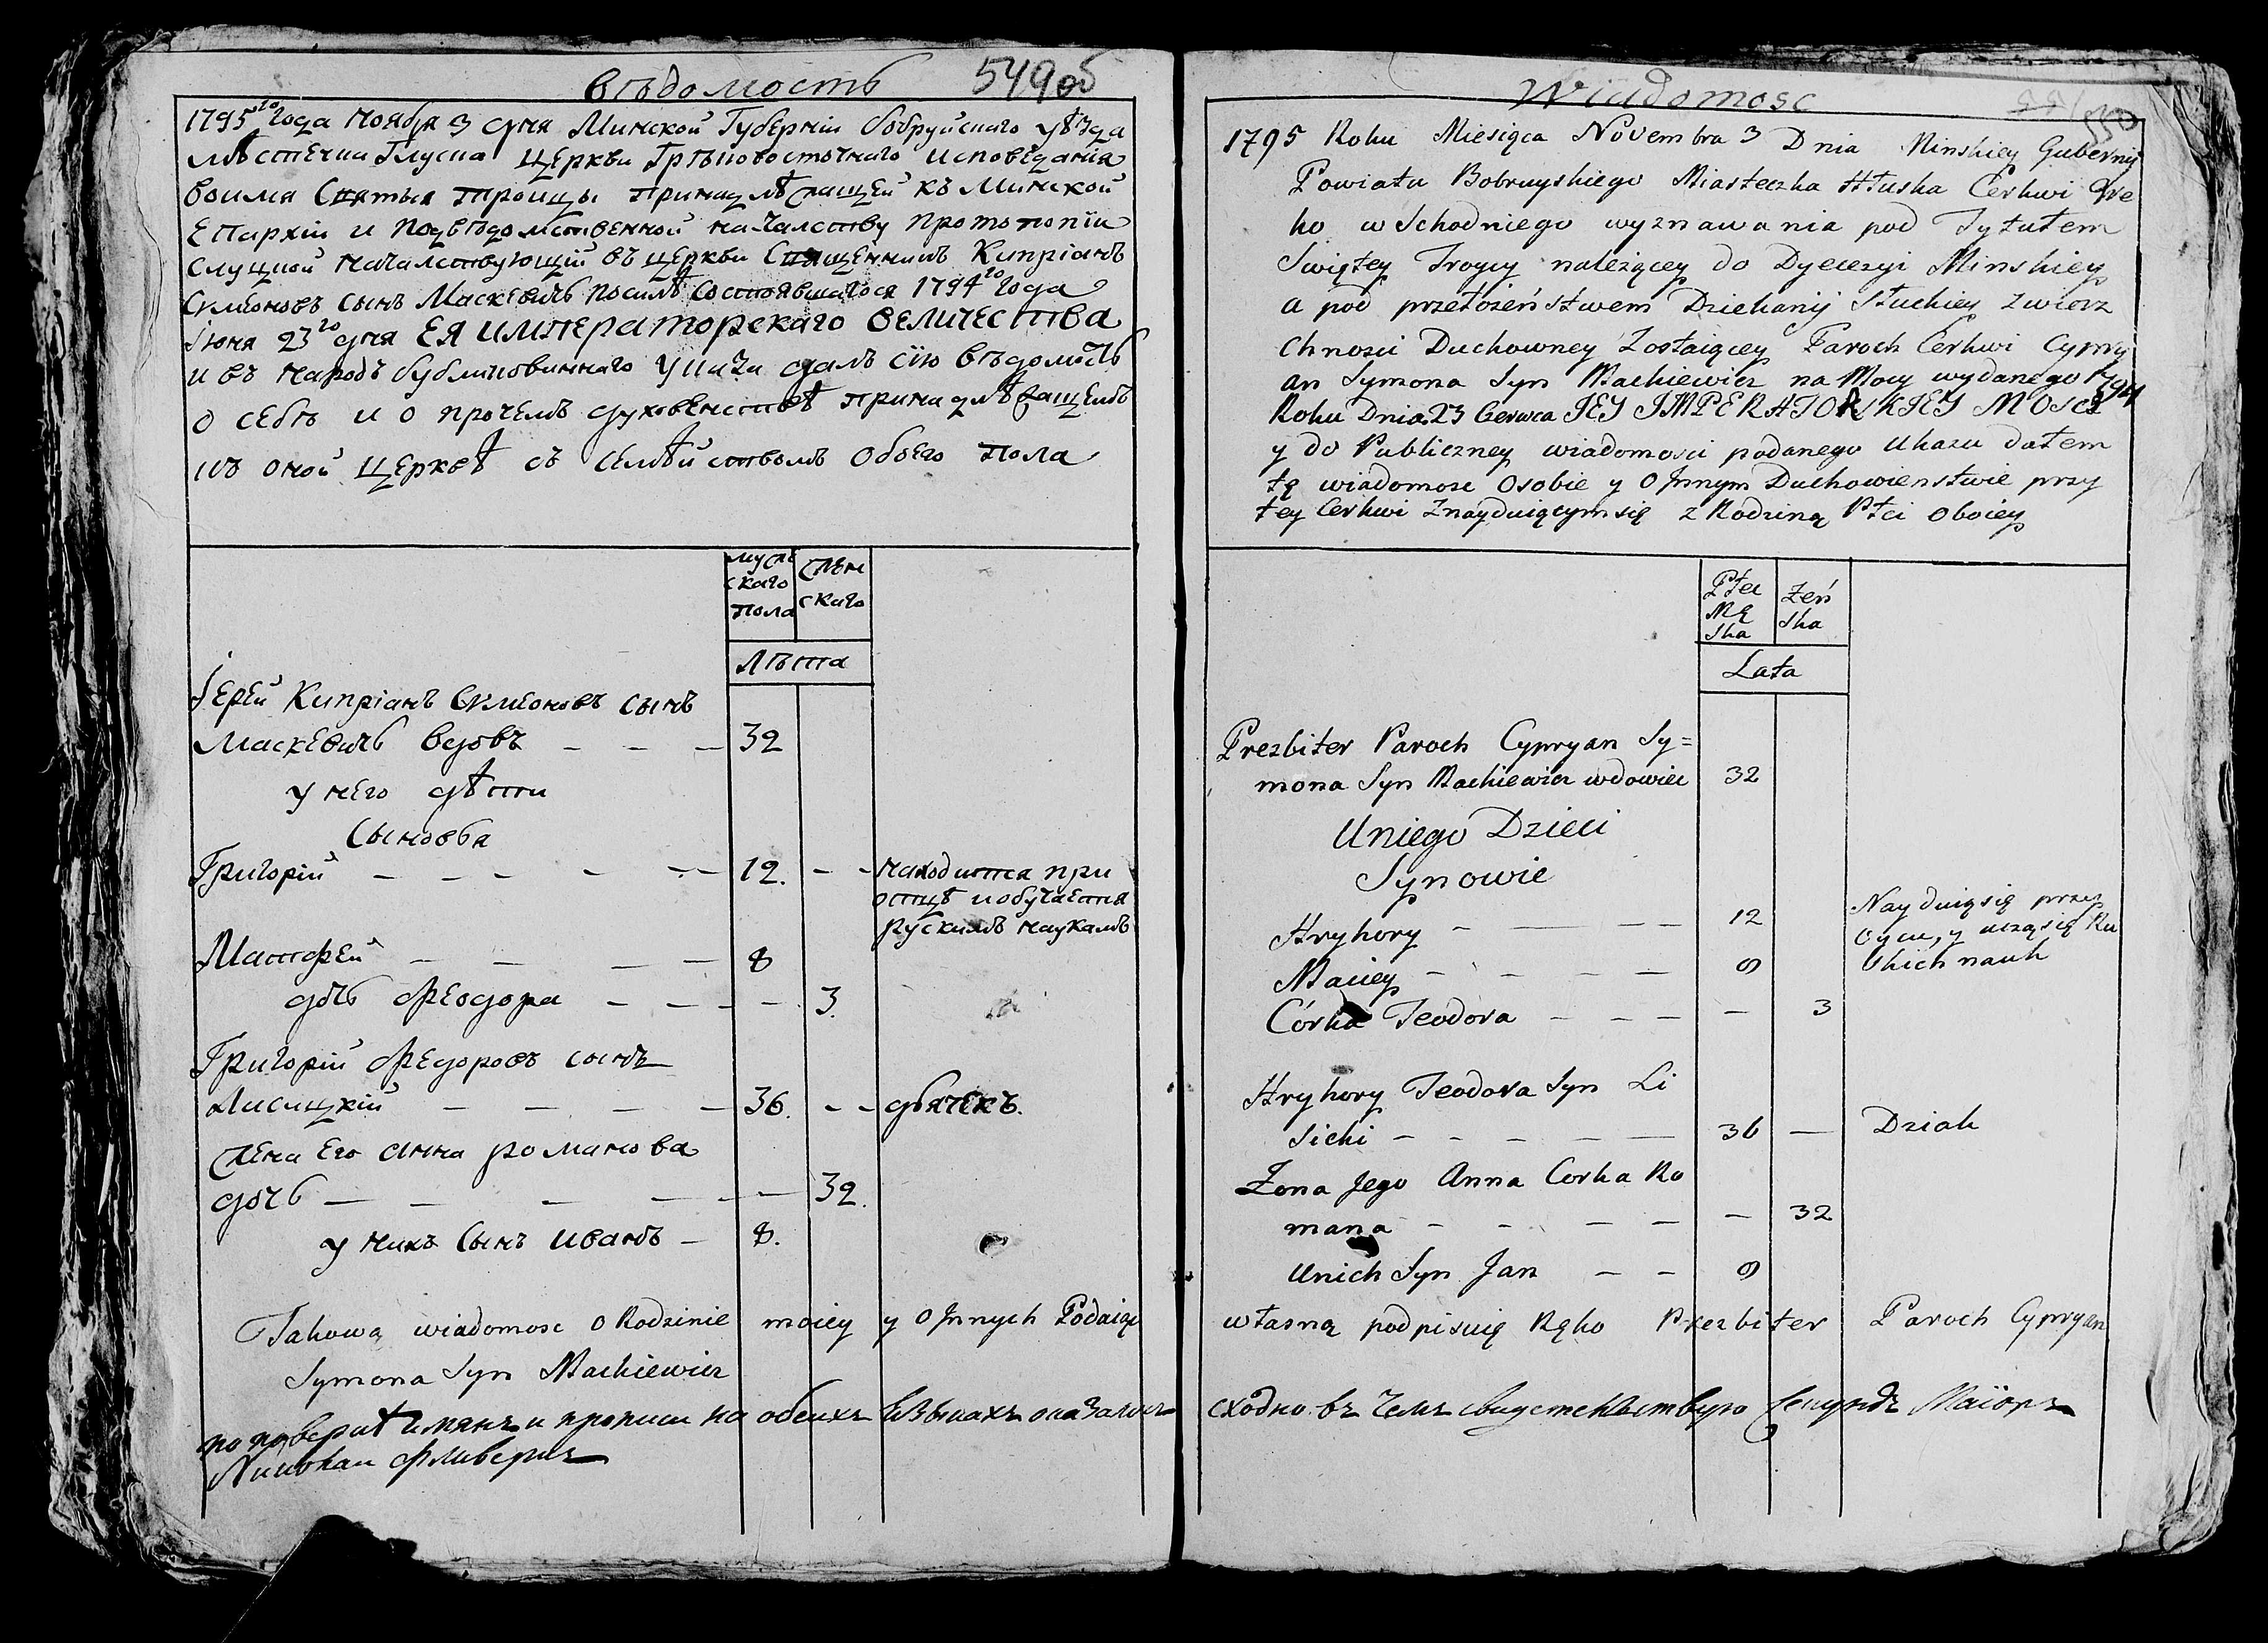 вѣдомость 549об
1795го Года Ноября 3 дня Минской Губерніи бобруйскаго уѣзда
мѣстечка Глуска церкви Грѣковосточнаго исповѣданїя
во имя Святыя троицы принадлѣжащей къ Минской
Епархіи и подвѣдомственной началству протопопіи
слуцкой началствующій въ церкви Священникъ Кипріанъ
Симеоновъ сынъ Маскевичъ посилѣ состоявшагося 1794го года
Іюня 23го дня ЕЯ ИМПЕРАТОРСКАГО ВЕЛИЧЕСТВА
и въ народъ бубликованнаго указа далъ сїю вѣдомость
о себѣ и о прочемъ духовенствѣ принадлѣжащемъ
къ оной церквѣ съ семѣйствомъ обоего пола
муже
скаго
пола
жѣн
скаго
лѣта
Іерей Кипріанъ Симеоновъ сынъ
Маскевичъ вдовъ — — — 32
у него дѣти
Сыновья
Григорій — — — — — — 12. — — находится при
отцѣ и обучается
рускимъ наукамъ
Матфей — — — — 8
дочь Феодора — — — — 3.
Григорій Федоровъ сынъ
Лисицкій — — — — 36. — — дьячекъ.
жена его анна романова
дочь — — — — — 32.
у нихъ Сынъ иванъ — 8.
Takową wiadomosc o Rodzinie moiey y o Jnnych Podaiąc
Symona Syn Mackiewicz
по поверкѣ имянъ и прописи на обеихъ Языкахъ оказалось
Wiadomosc
550
1795 Roku Miesiąca Novembra 3 Dnia Minskiey Gubernij
Powiatu Bobruyskiego Miasteczka Hłuska Cerkwi Gre
ko wschodniego wyznawania pod Tytułem
Swiętey Troycy należącey do Dyecezyi Minskiey
a pod przełożeństwem Dziekanij Słuckiey zwierz
chnosci Duchowney Zostaiącey Paroch Cerkwi Cypry
an Symona Syn Mackiewicz na Mocy wydanego 1794
Roku Dnia 23 Czerwca JEY JMPERATORSKIEY MOSCI
y do Publiczney wiadomosci podanego Ukazu dałem
tę wiadomosc o sobie y o Jnnym Duchowienstwie przy
tey Cerkwi Znayduiącym się z Rodziną Płci oboiey
Płci
Mę
ska
żeń
ska
Lata
Prezbiter Paroch Cypryan Sy=
mona Syn Mackiewicz wdowiec 32
U niego Dzieci
Synowie
Hryhory — — — — 12 Nayduią się przez
Oycu, y uczą się Ru
skich nauk
Maciey — — — — 8
Córka Teodora — — — — — 3
Hryhory Teodora Syn Li
sicki — — — — — 36 — Dziak
Żona Jego Anna Corka Ro
mana — — — — — 32
U nich Syn Jan — — 8
własną podpisuię Ręko Prezbiter Paroch Cypryan
сходно въ чемъ свидетельствую Секундъ Маіоръ